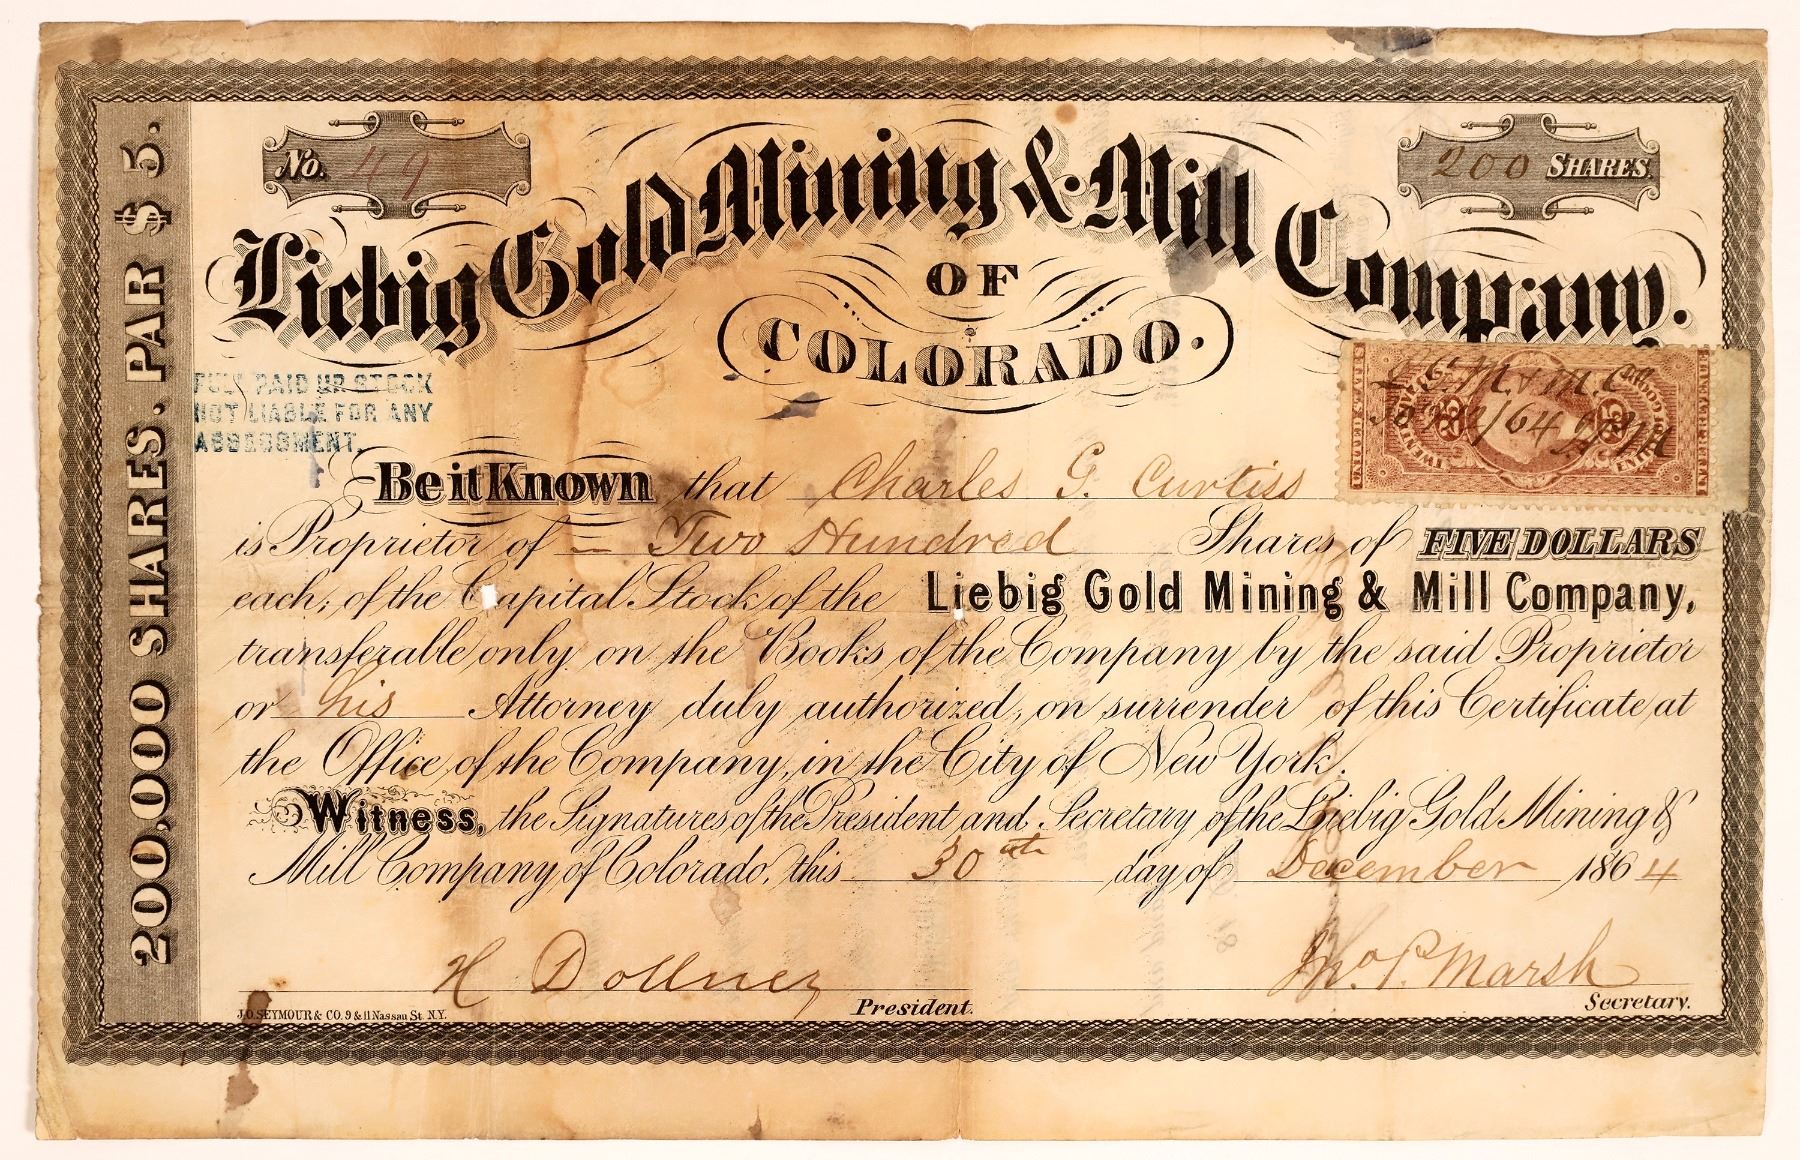 No. 49
200 SHARES.
Liebig Gold Mining & Mill Company.
OF
COLORADO.
200,000 SHARES. PAR $5.
FULL PAID UP STOCK
NOT LIABLE FOR ANY
ASSESSMENT.
UNITED STATES
INTER. REVENUE
25 25
L. G. M & M. Co
Be it Known that Charles G. Curtiss
is Proprietor of Two Hundred Shares of FIVE DOLLARS
each, of the Capital Stock of the Liebig Gold Mining & Mill Company,
transferable only on the Books of the Company by the said Proprietor
or his Attorney duly authorized, on surrender of this Certificate at
the Office of the Company, in the City of New York.
Witness, the Signatures of the President and Secretary of the Liebig Gold Mining &
Mill Company of Colorado, this 30th day of December 1864
H Dollner President.
Jno. P. Marsh Secretary.
J.O. SEYMOUR & CO. 9 & 11 Nassau St. N.Y.